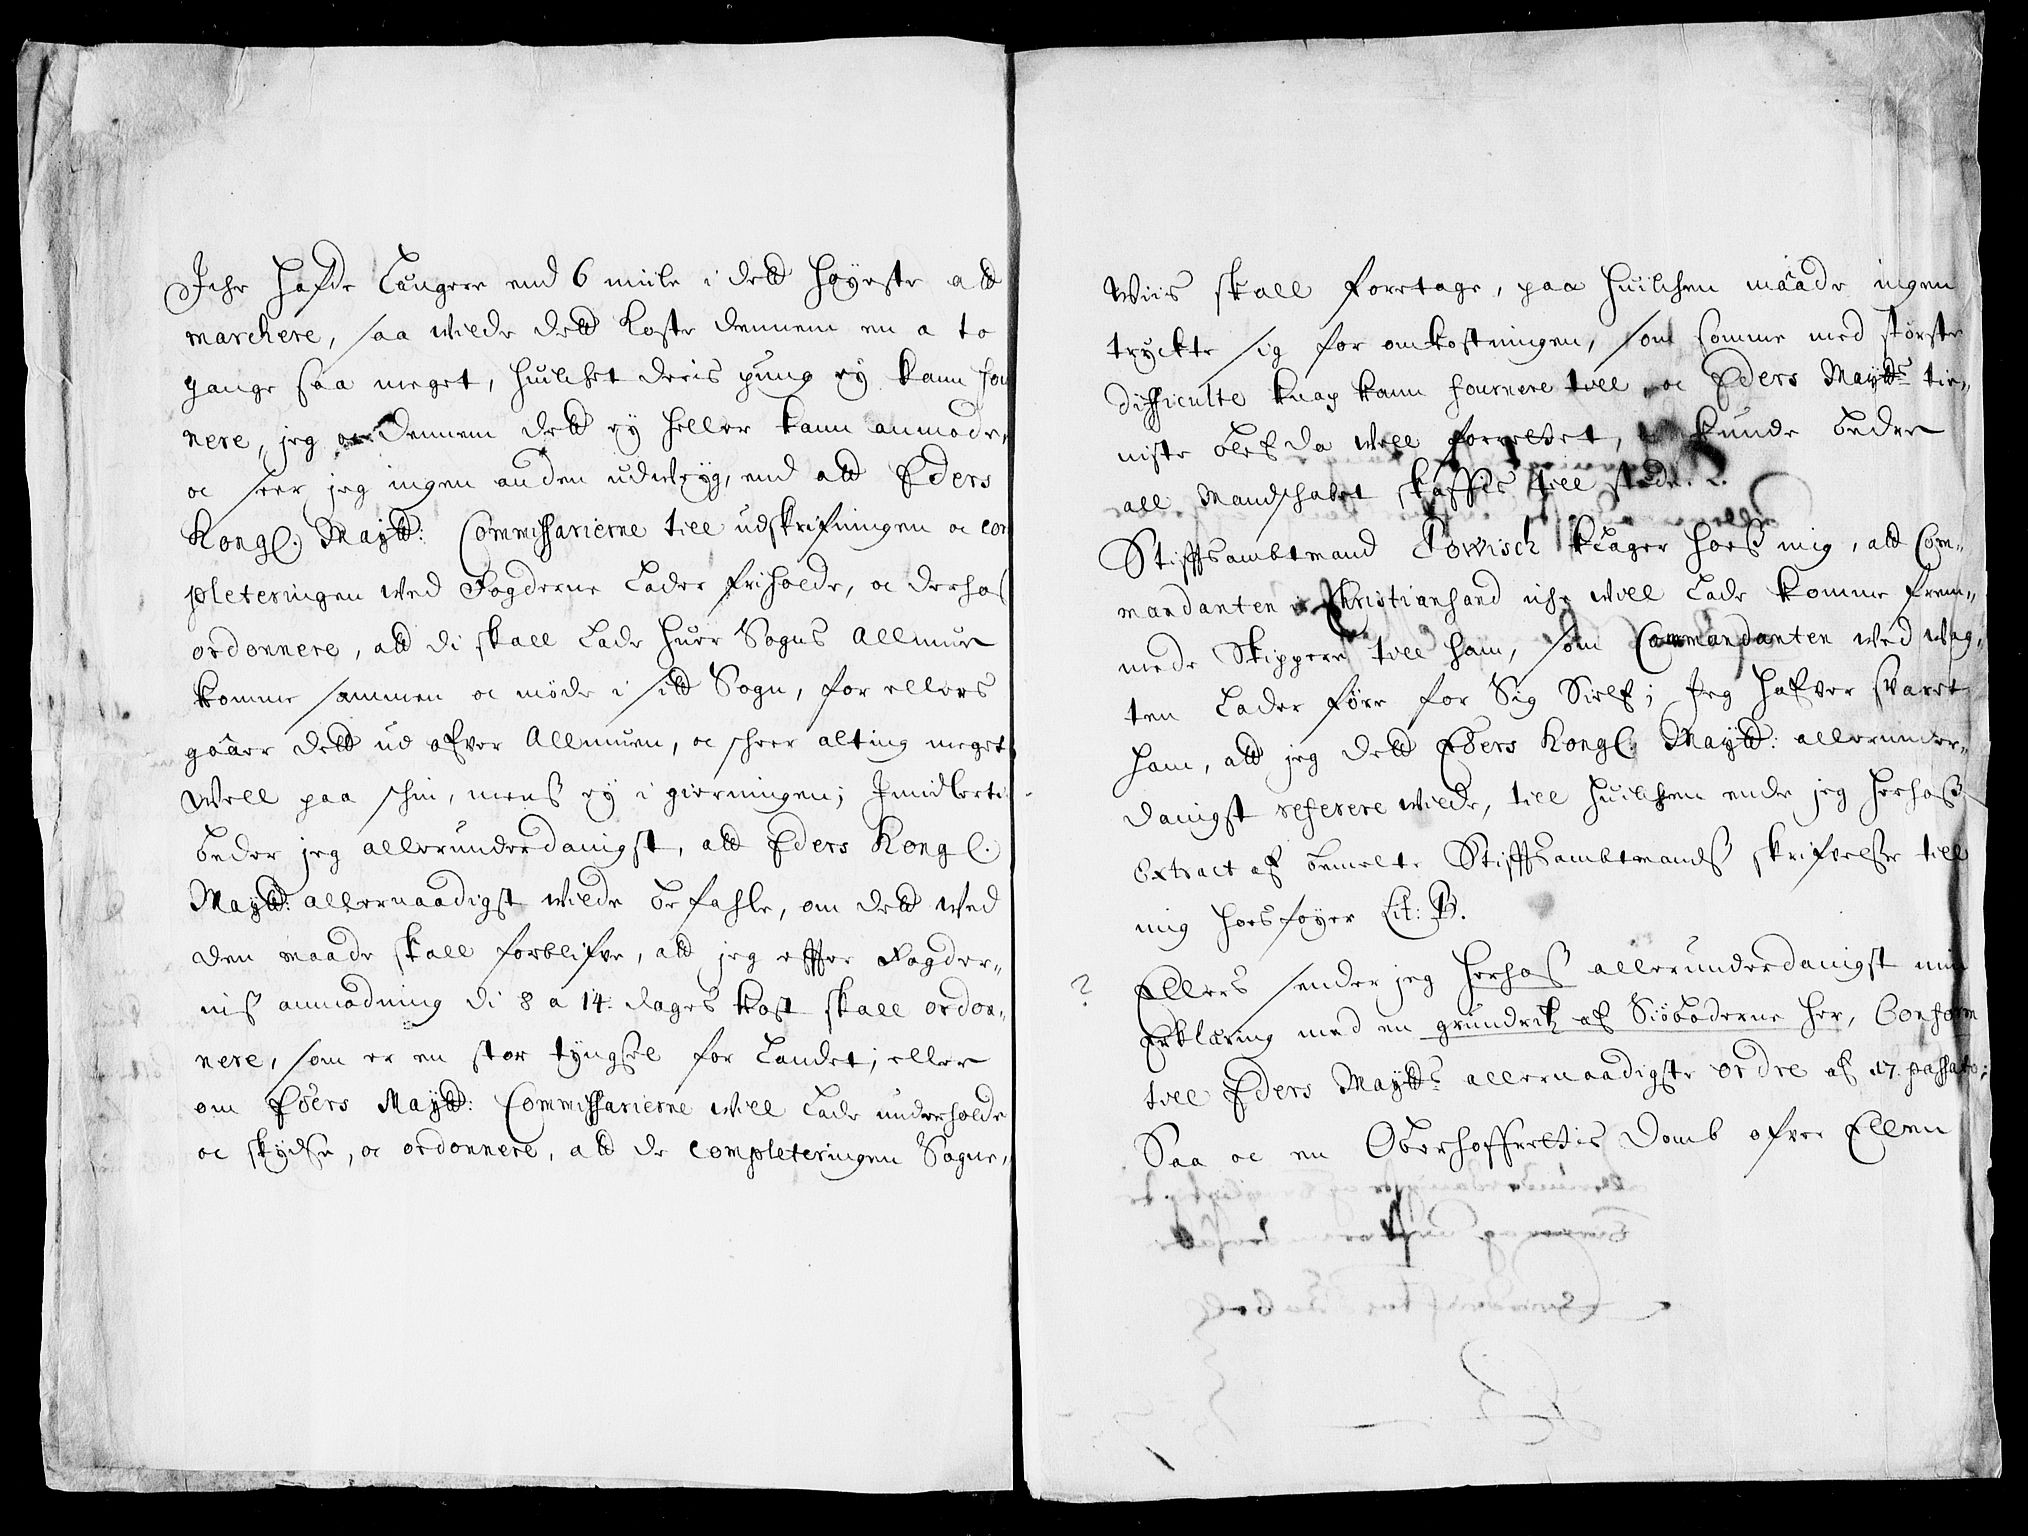 Iche hafde Længere end 6 miile i dett høyeste att
marchere, saa wilde dett koste dennem en a to
gange saa meget, huilchet deris pung ey kann four
nere, jeg dennem dett ey heller kann anmode,
oc seer jeg ingen anden udweyg, end att Eders
Kongl. Maytt: Commissarierne till udskrifningen oc com
pleteringen wed Fogderne lader friholde, oc derhos
ordonnere, att di skall lade huer Sogns Allmue
komme sammen oc møde i sitt Sogn, for ellers
gaaer dett ud ofver Allmuen, oc scheer alting meget
well paa schin, mens ey i gierningen; Imidlerti
beder jeg allerunderdanigst, att Eders Kongl.
Maytt: allernaadigst wilde befahle, om dett wed
den maade skall forblifve, att jeg effter Fogder„
nis anmodning di 8 a 14. dages kost skall ordon„
nere, som er en stor tyngsel for Landet; eller
om Eders Maytt: Commissarierne will lade underholde
oc skydse, oc ordonnere, att de completeringen Sogne„
wiis skall foretage, paa huilchen maade ingen
tryckte sig for omkostningen, som somme med største
difficulte knap kann fournere till, oc Eders Maytts tie„
niste blef da well forrettet, kunde beder
all Mandschabet skaffis till stede.
Stifftsambtmand Powisch klager hoes mig, att Com„
mandanten i Christiansand iche will lade komme frem„
mede Skippere till ham, som Commandanten wed wag„
ten lader føre for Sig Sielf; Jeg hafver svaret
ham, att jeg dett Eders Kongl. Maytt: allerunder„
danigst referere wilde, till huilchen ende jeg herhos
Extract af bemelte Stifftsambtmands skrifvelse till
mig hoesføyer Lit: B.
? Ellers sender jeg herhos allerunderdanigst min
Erklæring med en grundrits af Siøboderne her, Conform
till Eders Maytts allernaadigste ordre af 17. passato;
Saa oc en Oberhofferettis Domb ofver Ellen